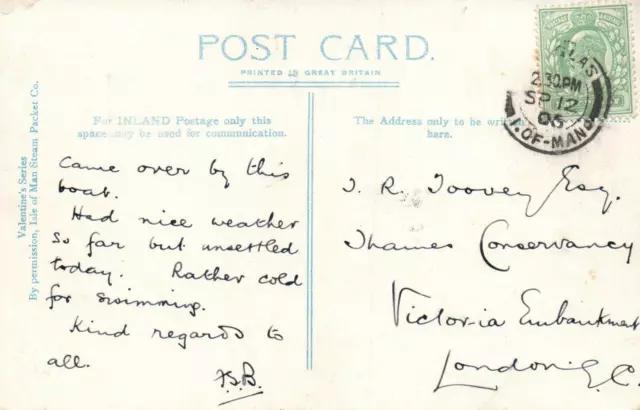 POST CARD.
PRINTED IN GREAT BRITAIN
Valentine's Series
By permission, Isle of Man Steam Packet Co.
For INLAND Postage only this
space may be used for communication.
The Address only to be written
here.
2.30PM
SP 12
06
I.OF-MAN
Came over by this
boat.
Had nice weather
so far but unsettled
today. Rather cold
for swimming.
Kind regards to
all.
F.S.B.
J. R. Toovey Esq.
Thames Conservancy
Victoria Embankment
London E.C.